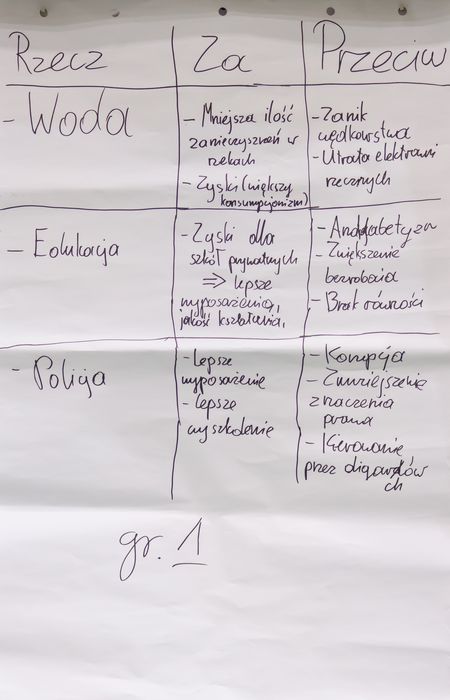 Rzecz Za Przeciw
- Woda
- Mniejsza ilość
zanieczyszczeń w
rzekach
- Zyski (większy
konsumpcjonizm)
- Zanik
wędkarstwa
- Utrata elektrowni
rzecznych
- Edukacja
- Zyski dla
szkół prywatnych
=> lepsze
wyposażenia,
jakość kształcenia,
- Analfabetyzm
- Zwiększenie
bezrobocia
- Brak równości
- Policja
- Lepsze
wyposażenie
- lepsze
wyszkolenie
- Korupcja
- Zmniejszenie
znaczenia
prawa
- Kierowanie
przez oligarchów
ch
gr. 1